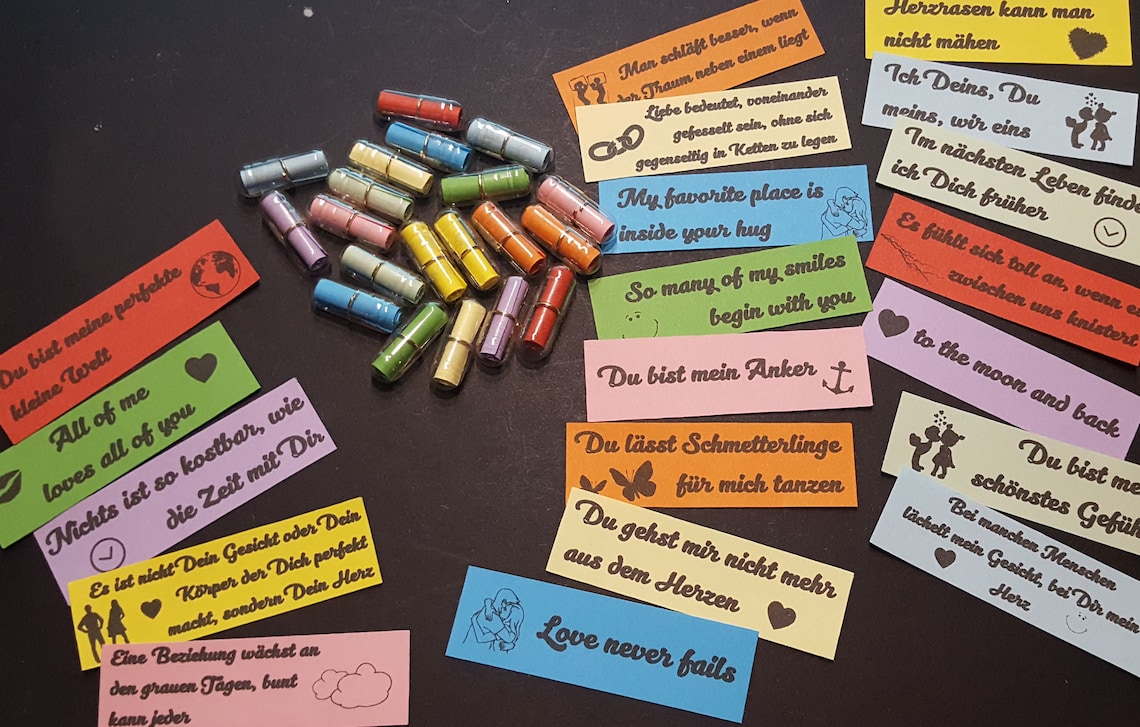 Du bist meine perfekte
kleine Welt
All of me
loves all of you
Nichts ist so kostbar, wie
die Zeit mit Dir
Es ist nicht Dein Gesicht oder Dein
Körper der Dich perfekt
macht, sondern Dein Herz
Eine Beziehung wächst an
den grauen Tagen, bunt
kann jeder
Man schläft besser, wenn
der Traum neben einem liegt
Liebe bedeutet, voneinander
gefesselt sein, ohne sich
gegenseitig in Ketten zu legen
My favorite place is
inside your hug
So many of my smiles
begin with you
Du bist mein Anker
Du lässt Schmetterlinge
für mich tanzen
Du gehst mir nicht mehr
aus dem Herzen
Love never fails
Herzrasen kann man
nicht mähen
Ich Deins, Du
meins, wir eins
Im nächsten Leben finde
ich Dich früher
Es fühlt sich toll an, wenn e
zwischen uns knistert
to the moon and back
Du bist me
schönstes Gefüh
Bei manchen Menschen
lächelt mein Gesicht, bei Dir mein
Herz